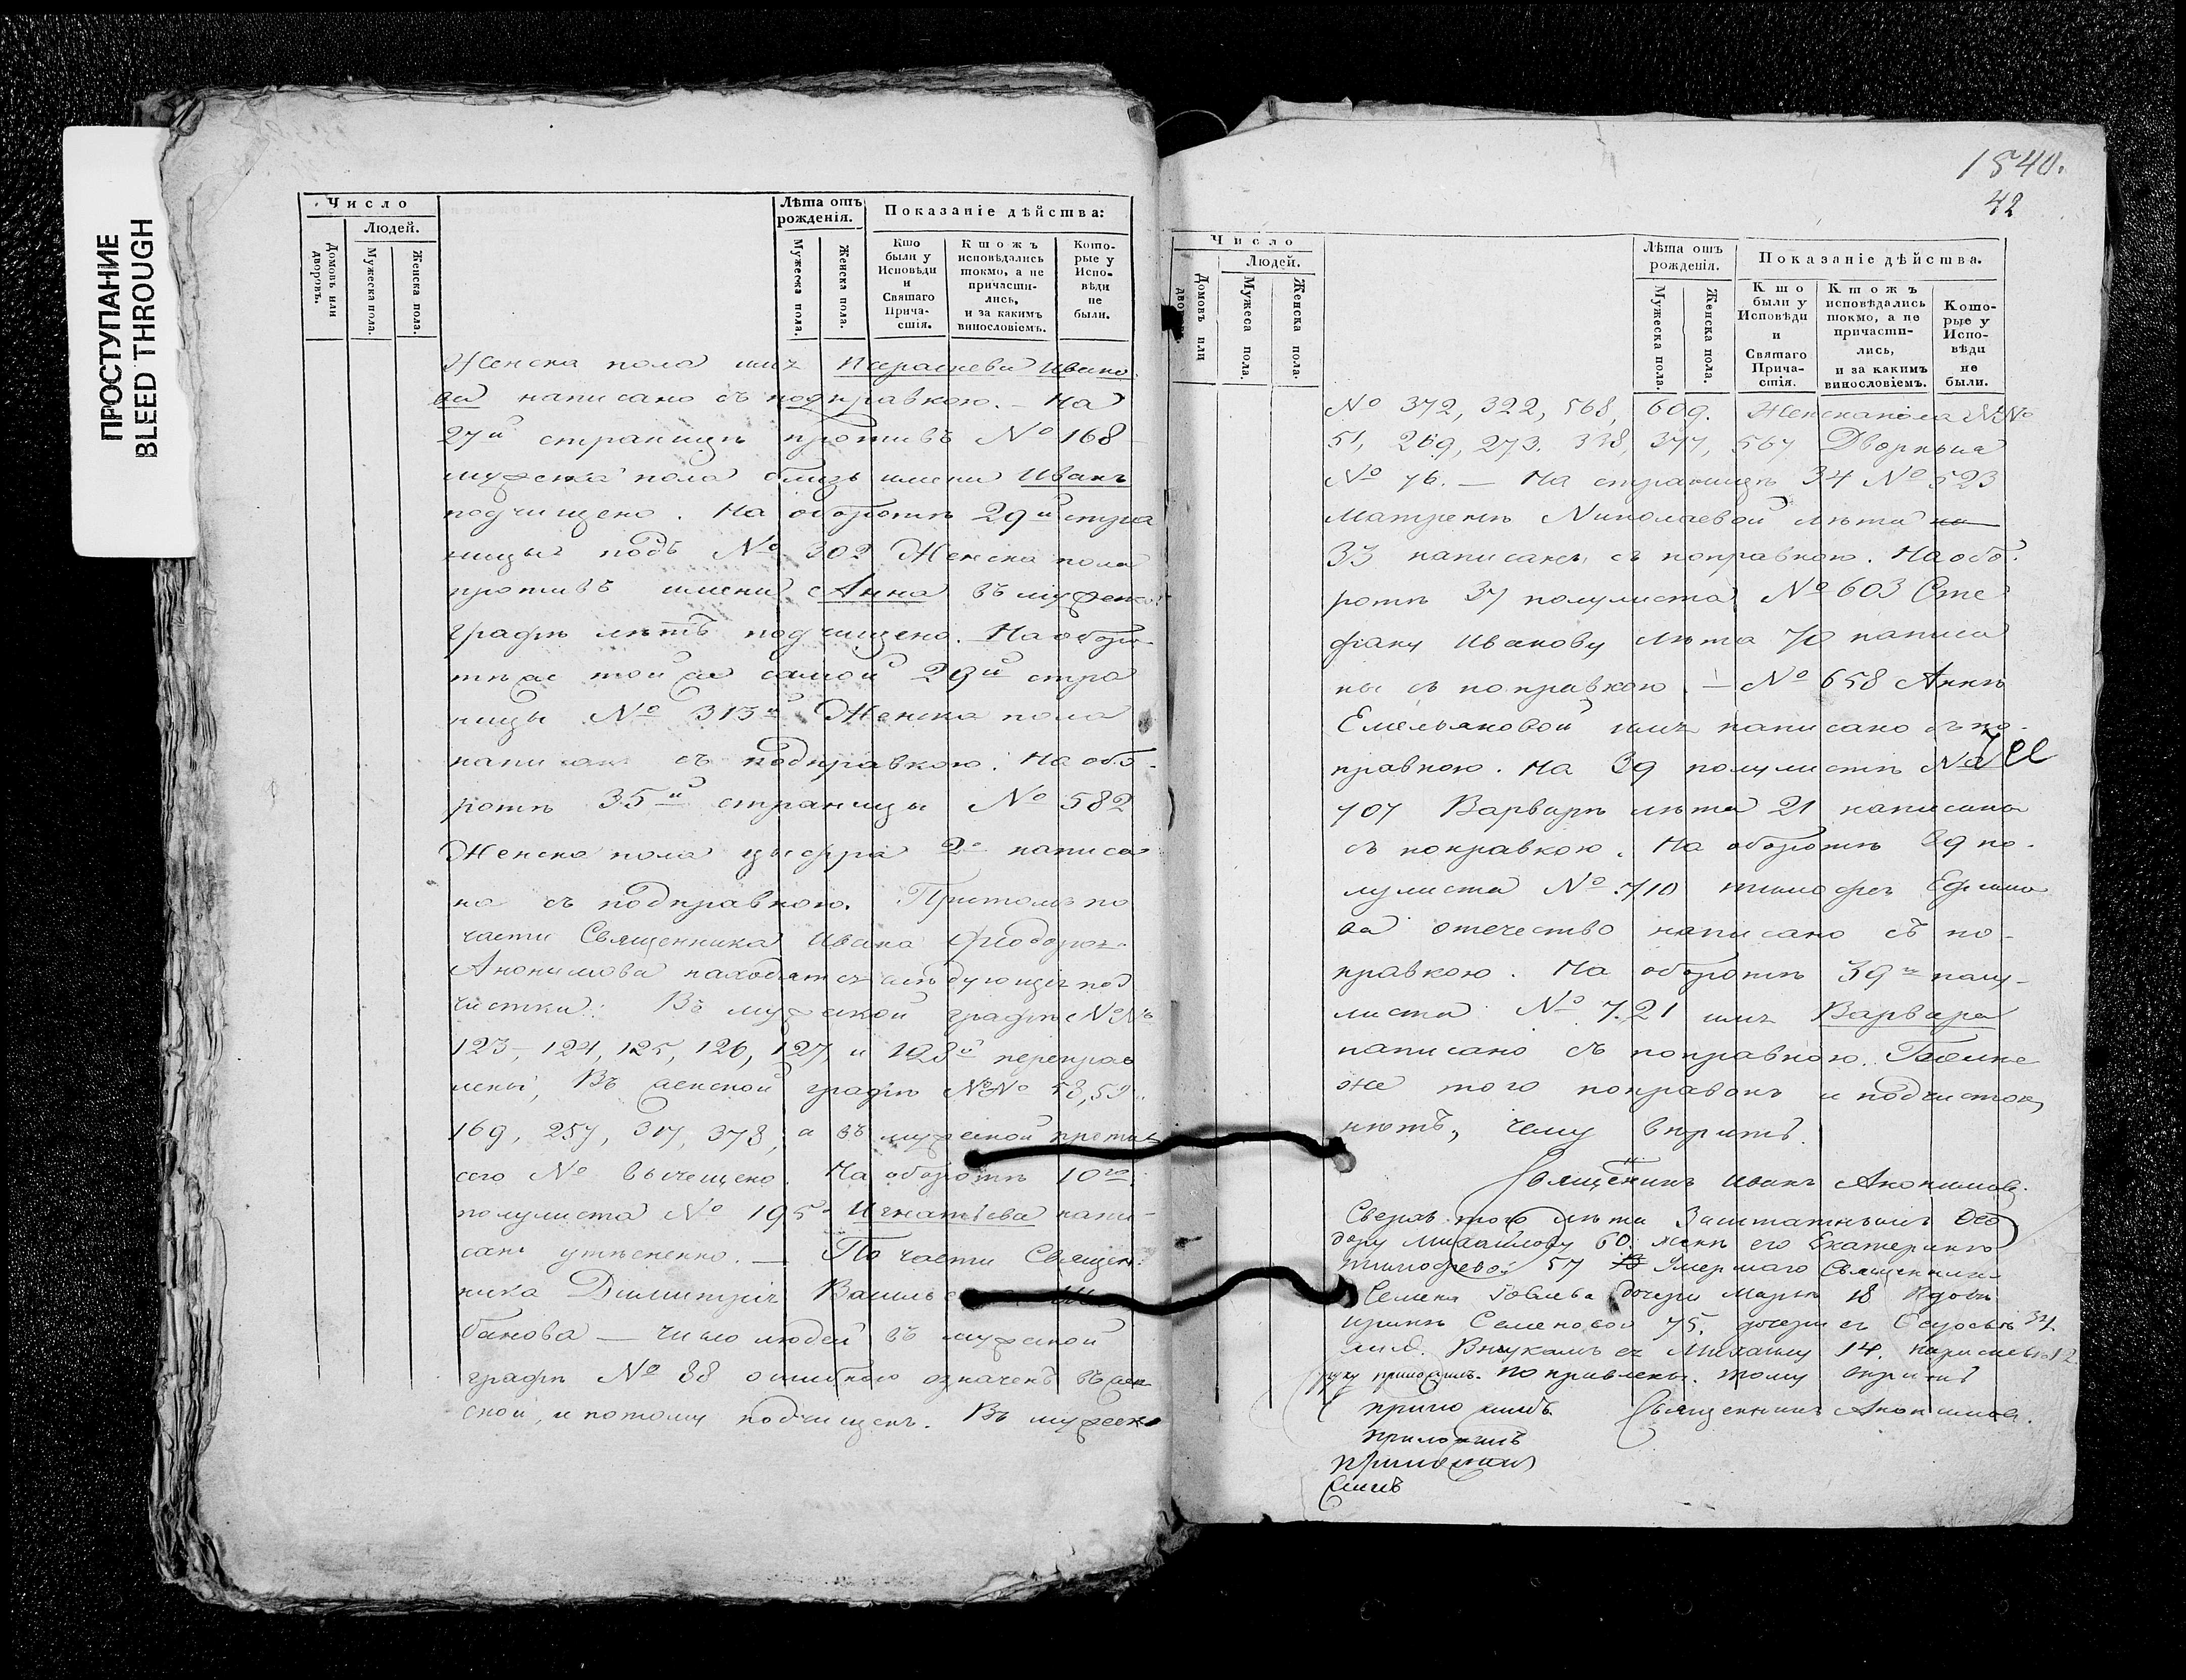 ПРОСТУПАНИЕ
BLEED THROUGH
Число
Людей.
Домовъ или дворовъ.
Мужеска пола.
Женска пола.
Лѣта отъ рожденія.
Мужеска пола.
Женска пола.
Показаніе дѣйства:
Кто были у Исповѣди и Святаго Причастія.
Ктожъ исповѣдались токмо, а не причастились, и за какимъ винословіемъ.
Которые у Исповѣди не были.
Женска пола имя Параскеви Ивано
ва написано съ подправкою. – На
27й страницѣ противъ № 168
мужеска пола близь имени Иванъ
подчищено. На оборотѣ 29й стра
ницы подъ № 302 Женска пола
противъ имени Анна въ мужеской
графѣ лѣтъ подчищено. На оборо-
тѣ же той же самой 29й стра
ницы № 313й Женска пола
написанъ съ подправкою. На обо-
ротѣ 35й страницы № 582
Женска пола цыфра 2 написа
на съ подправкою. Притомъ по
части Священника Ивана
Анонимова находятся слѣдующія под
чистки: Въ мужеской графѣ №№
123, 124, 125, 126, 127 и 128й переправ
лены, Въ женской графѣ №№ 58, 59
169, 257, 317, 378, а въ мужеской противъ
сего № вычищено. На оборотѣ 10го
полулиста № 195 Игнатьева напи-
сано утѣсненно. – По части Священ-
ника Димитрія
банова – число людей въ мужеской
графѣ № 88 ошибкою означенъ въ жен
ской, и потому подчищенъ. Въ мужеско
1840.
42
Число
Людей.
Домовъ или дворовъ.
Мужеса пола.
Женска пола.
Лѣта отъ рожденія.
Мужеска пола.
Женска пола.
Показаніе дѣйства.
Кто были у Исповѣди и Святаго Причастія.
Ктожъ исповѣдались токмо, а не причастились, и за какимъ винословіемъ.
Которые у Исповѣди не были.
№ 372, 322, 568, 609. Женска пола №№
51, 269, 273. 338, 377, 567 Дворныя
№ 76. – На страницѣ 34 № 523
Матренѣ Николаевой лѣта
33 написаны съ поправкою. На обо-
ротѣ 37 полулиста № 603 Сте
фану Иванову лѣта 70 написа
ны съ поправкою. – № 658 Аннѣ
Емельяновой имя написано съ по-
правкою. На 39 полулистѣ №
707 Варварѣ лѣта 21 написаны
съ поправкою. На оборотѣ 39 по-
лулиста № 710 Тимофея Ефимо
ва отечество написано съ по-
правкою. На оборотѣ 39го полу-
листа № 721 имя Варвара
написано съ поправкою. Болѣе
же того поправокъ и подчистокъ
нѣтъ, чему вѣрить.
Священникъ Иванъ Анонимовъ.
Сверхъ того лѣта Заштатнымъ Ѳео
дору Михайлову 60. женѣ его Екатеринѣ
Тимофеевой 57 Умершаго Священника
Семена дочери Марьи 18 Вдовѣ
Иринѣ Семеновой 75, дочери ея 34.
Внукамъ ея Михаилу 14. 12
поправлены. тому вѣрить
Священникъ Анонимовъ.
приложилъ